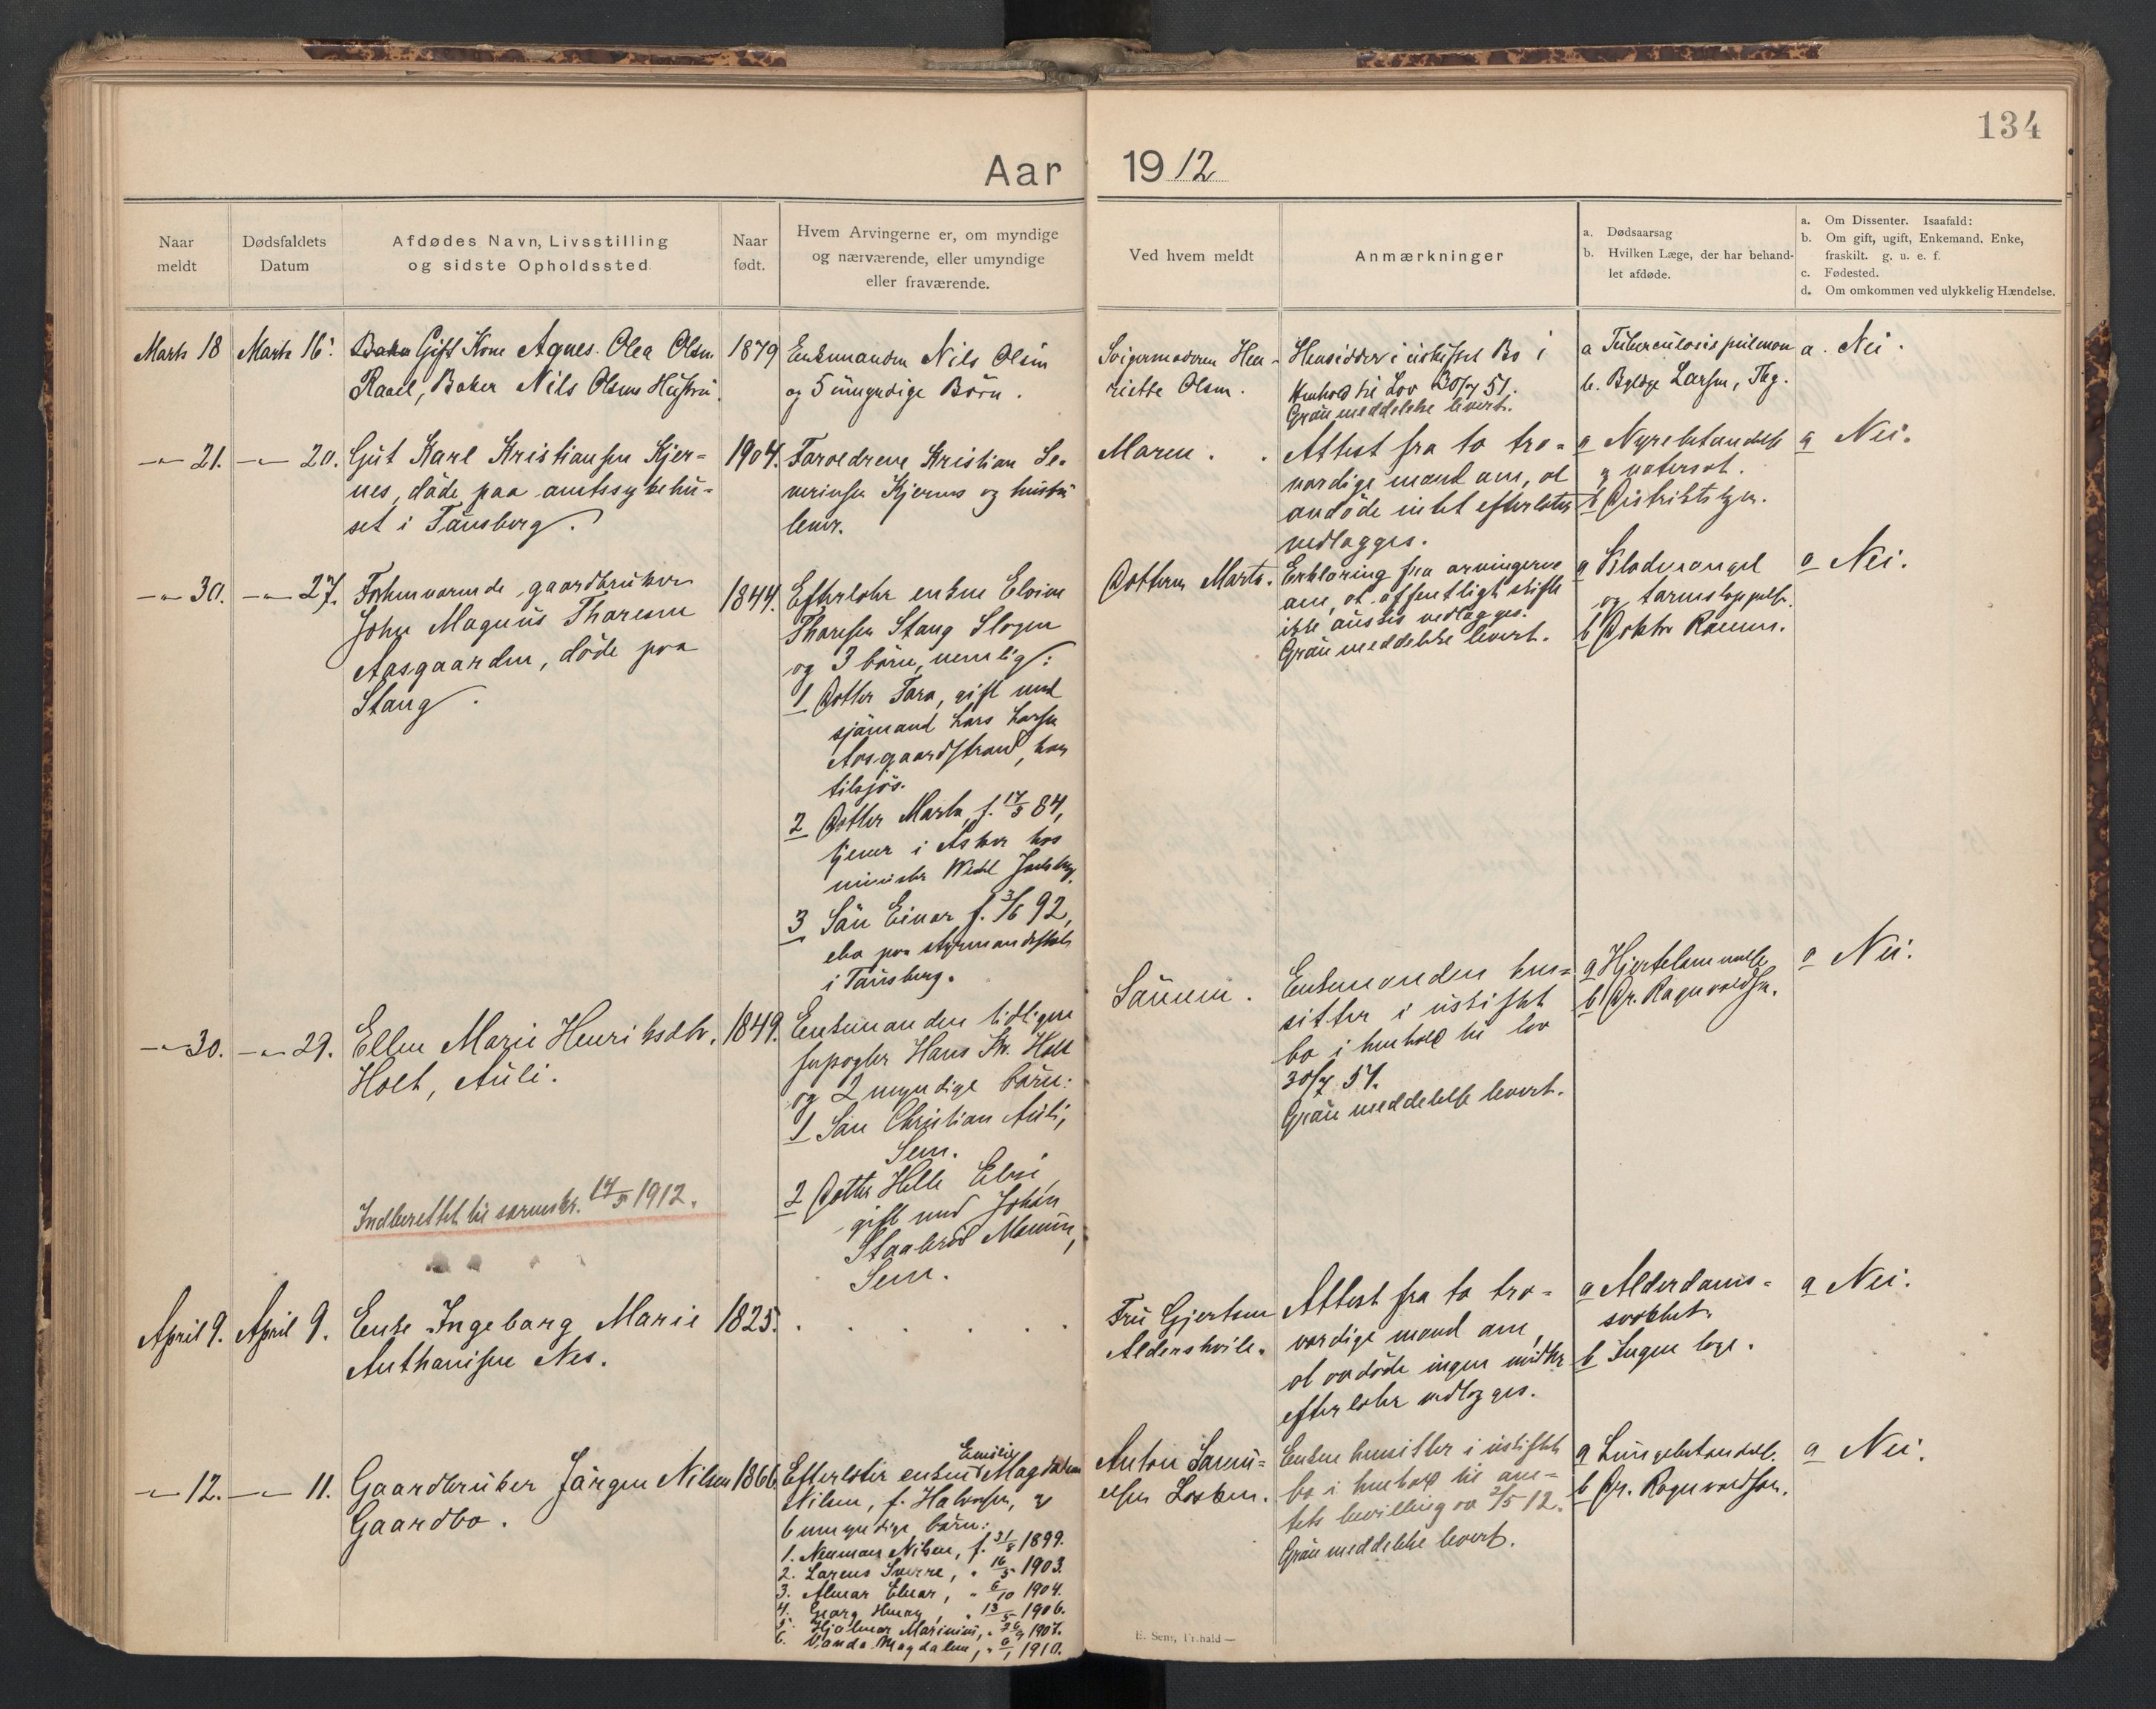 134
Aar 1912
Naar
meldt
Dødsfaldets
Datum
Afdødes Navn, Livsstilling
og sidste Opholdssted
Naar
født.
Hvem Arvingerne er, om myndige
og nærværende, eller umyndige
eller fraværende.
Ved hvem meldt
Anmærkninger
a. Dødsaarsag
b. Hvilken Læge, der har behand-
let afdøde.
a. Om Dissenter. Isaafald:
b. Om gift, ugift, Enkemand, Enke,
fraskilt. g. u. e. f.
c. Fødested.
d. Om omkommen ved ulykkelig Hændelse.
Marts 18
Marts 16.
Gift Kone Agnes Olea Olsen
Rael, Baker Nils Olsens Hustru.
1879
Enkemanden Nils Olsen
og 5 umyndige Börn.
Svigermoderen Hen-
riette Olsen.
Hensidder i uskiftet Bo i
Henhold til Lov 30/7 51.
Græn meddelelse levert.
a Tuberculosis pulmon
b. Byläge Larsen, Tbg.
a. Nei.
-"- 21.
-"- 20.
Gut Karl Kristiansen Kjer-
nes, döde paa amtssykehu-
set i Tönsberg.
1904.
Forældrene Kristian Se-
verinsen Kjernes og hustru
lever.
Moren.
Attest fra to tro-
værdige mænd om, at
avdöde intet efterlater
vedlægges.
a Nyrebetændelse
og vatersot.
b Distriktslægen.
a Nei.
-"- 30.
-"- 27.
Forhenværende gaardbruker
John Magnus Thoresen
Aasgaarden, döde paa
Stang.
1844.
Efterlater enken Elvine
Thoresen Stang Slagen
og 3 börn, nemlig:
1 Datter Tora, gift med
sjömand Lars Larsen
Aasgaardstrand, han
tilsjös.
2 Datter Marta, f. 17/3 84,
tjener i Asker hos
minister Wedel Jarlsberg.
3 Sön Einar f. 3/6 92,
elev paa styrmandsskolen
i Tönsberg.
Datteren Marta.
Erklæring fra arvingerne
om, at offentligt skifte
ikke önskes vedlægges.
Græn meddelelse levert.
a Blodmangel
og tarmstoppelse.
b Doktor
a Nei.
-"- 30.
-"- 29.
Ellen Marie Henriksdtr.
Holt, Auli.
1849.
Enkemanden tidligere
Hans Kr. Holt
og 2 myndige börn:
1 Sön Christian Auli,
Sem.
2 Datter Helle Elvi,
gift med Johan
Sem.
Sönnen.
Enkemanden hen-
sitter i uskiftet
bo i henhold til lov
30/7 51.
Græn meddelelse levert.
a Hjertelammelse
b Dr. Ragnvaldsen.
a Nei.
Indberettet til sorenskr. 14/5 1912.
April 9.
April 9.
Enke Ingeborg Marie
Anthonisen Nes.
1825.
Fru Gjertsen
Aldershvile.
Attest fra to tro-
værdige mænd om,
at avdöde ingen midler
efterlater vedlægges.
a Alderdoms-
svakhet.
b Ingen læge.
a Nei.
-"- 12.
-"- 11.
Gaardbruker Jörgen Nilsen
Gaardbo.
1866.
Efterlater enken Emilie Magdalene
Nilsen, f. Halvorsen, og
6 umyndige börn:
1. Normann Nilsen, f. 21/8 1899.
2. Lorens Sverre, " 16/5 1903.
3. Almar Elnar, " 6/10 1904.
4. Georg Henry, " 13/5 1906.
5. Hjalmar Marinius, " 26/9 1907.
6. Vanda Magdalene, " 6/1 1910.
Anton Samu-
elsen Løkken.
Enken hensitter i uskiftet
bo i henhold til am-
tets bevilling av 2/5 12.
Græn meddelelse levert.
a Lungebetændelse.
b Dr. Ragnvaldsen.
a Nei.
E. Sem, Fr.hald —